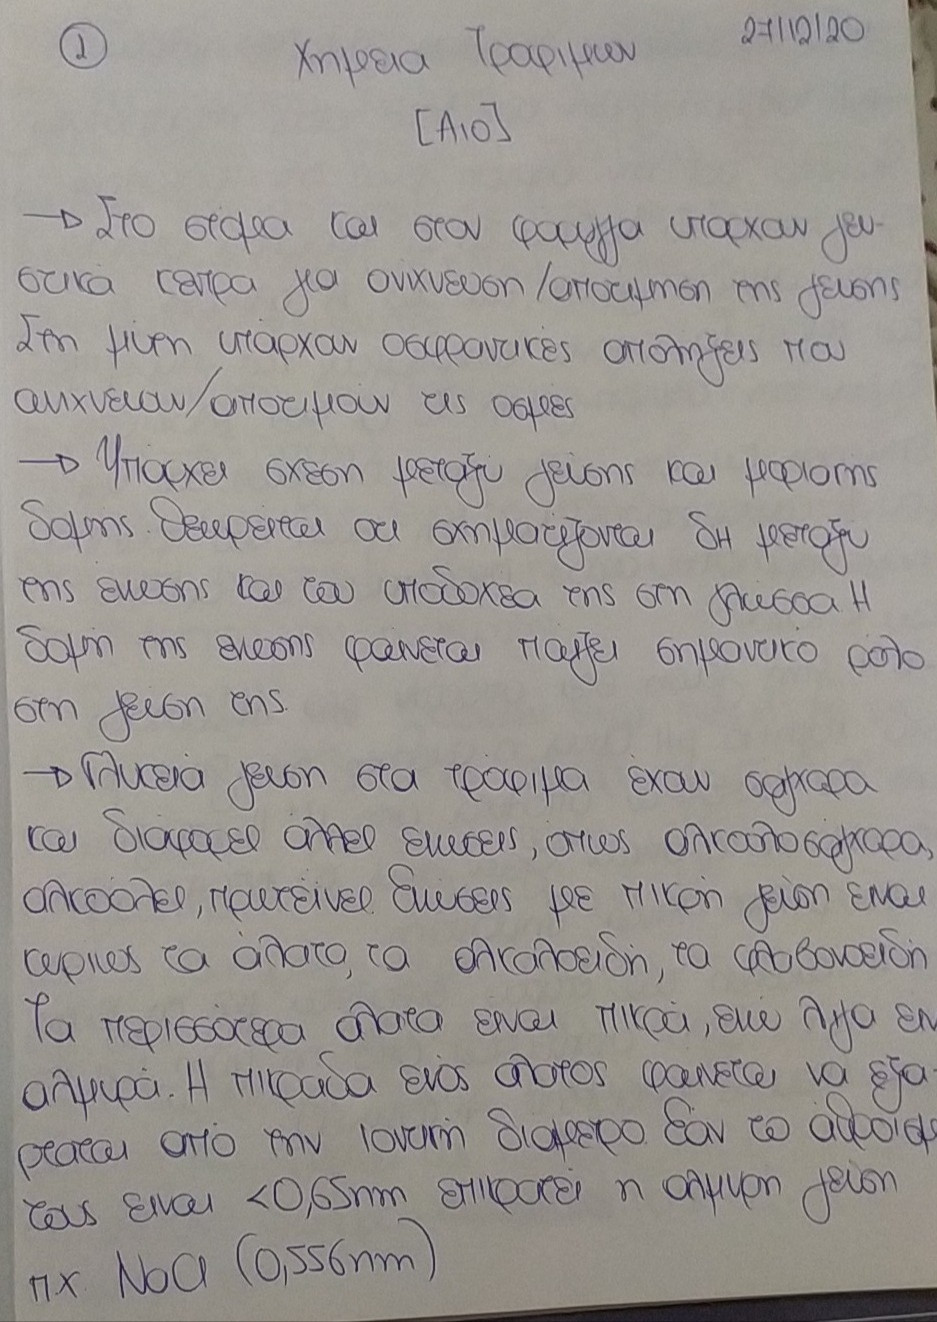 ①
27/12/20
Χημεια Τροφιμων
[Α10]
→ Στο στόμα και στον φαρυγγα υπαρχουν γευ-
στικά κεντρα για ανιχνευση/αποτιμηση της γευσης
Στη μύτη υπάρχουν οσφραντικές απολήξεις που
ανιχνευουν/αποτιμούν τις οσμές
→ Υπάρχει σχέση μεταξυ γεύσης και μοριακης
δομής. Θεωρείται οτι σχηματίζονται δΗ μεταξυ
της ενωσης και του υποδοχέα της στη γλώσσα. Η
δομή της ενωσης φαίνεται παιζει σημαντικο ρολο
στη γεύση της.
→ Γλυκειά γευση στα τρόφιμα έχουν σακχαρα
και διαφορες άλλες ενωσεις, οπως αλκοολοσακχαρα,
αλκοόλες, πρωτείνες. Ενώσεις με πικρή γεύση ειναι
κυριως τα άλατα, τα αλκαλοειδή, τα φλαβονοειδη
Τα περισσότερα αλατα ειναι πικρά, ενω λιγα ειν
αλμυρά. Η πικραδα ενός αλατος φαινεται να εξα-
ρταται από την ιοντικη διαμετρο. Εάν το άθροισμ
τους ειναι <0,65nm επικρατεί η αλμυρη γεύση
πχ NaCl (0,556nm)